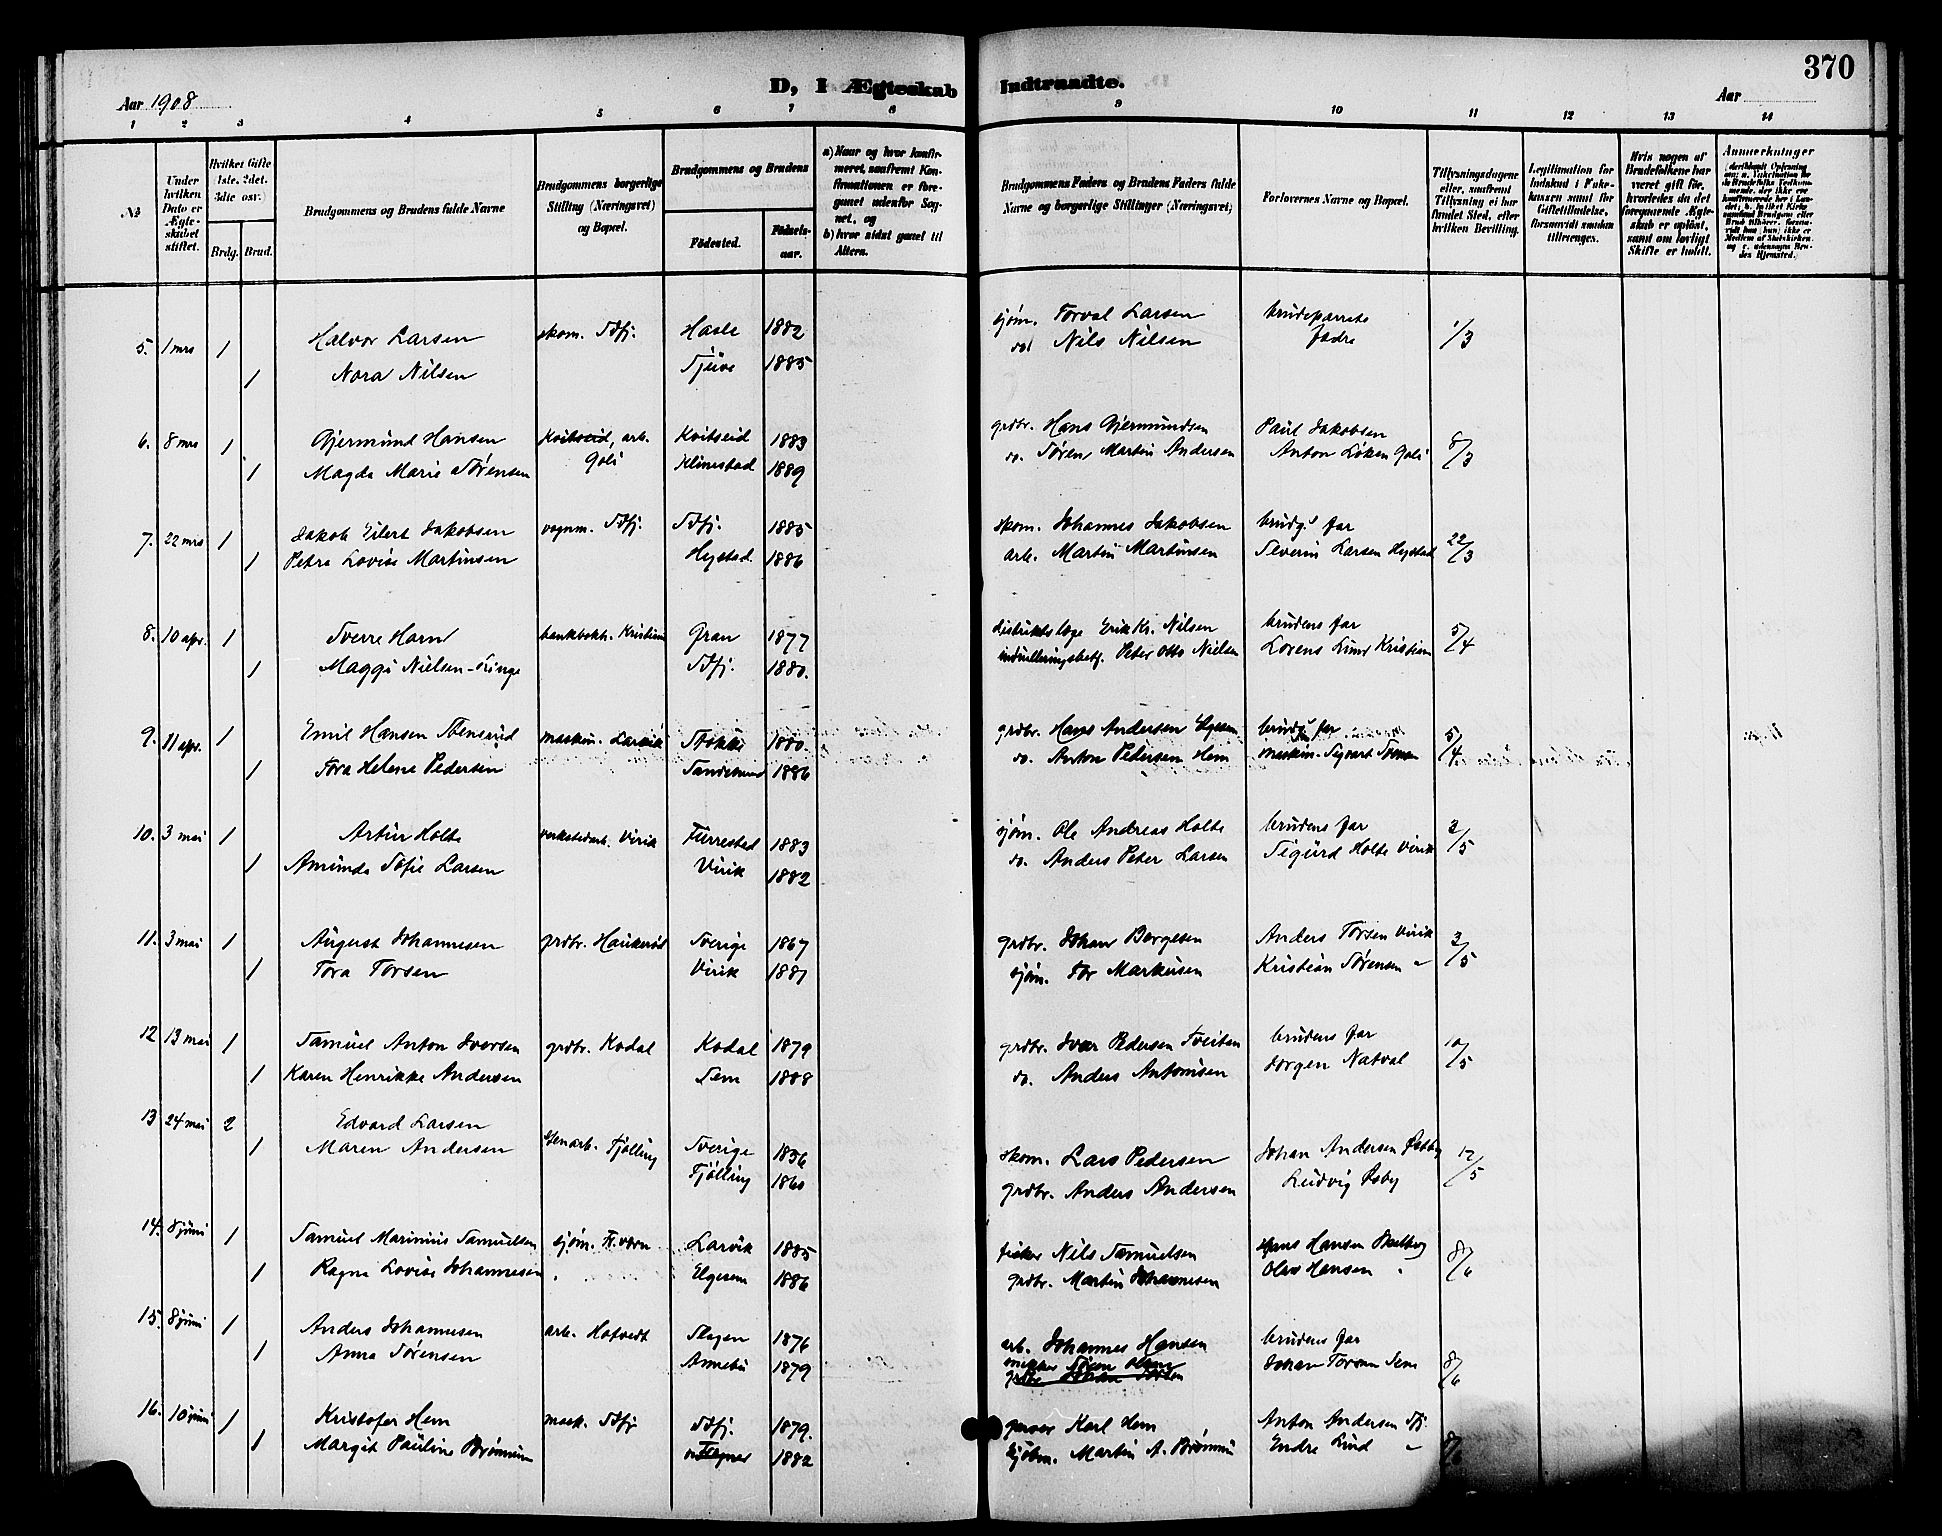 370
D, I Ægteskab Indtraadte.
Aar 1908
Aar
1 2 3 4 5 6 7 8 9 10 11 12 13 14
№
Under hvilken Dato er Ægteskabet stiftet.
Hvilket Gifte 1ste, 2det, 3die osv.
Brdg. Brud.
Brudgommens og Brudens fulde Navne
Brudgommens borgerlige Stilling (Næringsvei) og Bopæl.
Brudgommens og Brudens
Fødested.
Fødselsaar.
a) Naar og hvor konfirmeret, saafremt Konfirmationen er foregaaet udenfor Sognet, og
b) hvor sidst gaaet til Alters.
Brudgommens Faders og Brudens Faders fulde Navne og borgerlige Stillinger (Næringsvei)
Forlovernes Navne og Bopæl.
Tillysningsdagene eller, saafremt Tillysning ei har fundet Sted, efter hvilken Bevilling.
Legitimation for Indskud i Enkekassen samt for Giftetilladelse, forsaavidt saadan tiltrænges.
Hvis nogen af Brudefolkene har været gift før, hvorledes da det foregaaende Ægteskab er opløst, samt om lovligt Skifte er holdt.
Anmærkninger
5. 1 mrs 1 Halvor Larsen skom. Sdfj. Hasle 1882 sjøm. Torval Larsen brudeparrets 1/3
1 Nora Nilsen Tjuve 1885 do Nils Nilsen fædre
6. 8 mrs 1 Gjermund Hansen Kvitseid, arb. Kvitseid 1883 grdbr. Hans Gjermundsen Paul Jakobsen 8/3
1 Magda Marie Sørensen Goli Klinestad 1889 do. Søren Martin Andersen Anton Løken Goli
7. 22 mrs 1 Jakob Eilert Jakobsen vognm. Sdfj. Sdfj. 1885 skom. Johannes Jakobsen brudg.s far 22/3
1 Petra Lovise Martinsen Hystad 1886 arb. Martin Martinsen Severin Larsen Hystad
8. 10 apr. 1 Sverre Harn bankbokh. Kristiania Gran 1877 distriktslæge Erik Kr. Nilsen brudens far 5/4
1 Maggi Nielsen-Linge Sdfj. 1880. indrulleringsbetj. Peter Otto Nielsen Lorens Lund Kristiania
9. 11 apr. 1 Emil Hansen Stensrud maskin. Larvik Stokke 1880. grdbr. Hans Andersen brudg.s far 5/4
1 Tora Helene Pedersen Sandesund 1886 do. Anton Pedersen Hem maskin. Sigvart
10. 3 mai 1 Artur Holte verkstedarb. Virik Furrestad 1883 sjøm. Ole Andreas Holte brudens far 3/5
1 Amunda Sofie Larsen Virik 1882 do. Anders Peter Larsen Sigurd Holte Virik
11. 3 mai 1 August Johannesen grdbr. Haukerød Sverige 1867 grdbr. Johan Børgesen Anders Torsen Virik 3/5
1 Tora Torsen Virik 1881 sjøm. Tor Markusen Kristian Sørensen "
12 13 mai 1 Samuel Anton Iversen grdbr. Kodal Kodal 1879 grdbr. Iver Pedersen Tveitan brudens far 10/5
1 Karen Henrikke Andersen Sem 1888 do. Anders Antonisen Jørgen Natval
13 24 mai 2 Edvard Larsen stenarb. Tjølling Sverige 1856 skom. Lars Pedersen Johan Andersen Østby 12/5
1 Maren Andersen Tjølling 1860 grdbr. Anders Andersen Ludvig Østby
14. 8 juni 1 Samuel Marinius Samuelsen sjøm. Fr.værn Larvik 1885 fisker Nils Samuelsen Hans Hansen 8/6
1 Ragna Lovise Johannesen " Elgesem 1886 grdbr. Martin Johannesen Olav Hansen "
15. 8 juni 1 Anders Johannesen arb. Hotvedt Slagen 1876 arb. Johannes Hansen brudens far 8/6
1 Anna Sørensen Annebu 1879 Søren Olsen Johan Torsen Sem
grdbr. Johan Torsen
16. 10 juni 1 Kristofer Hem mask. Sdfj Sdfj. 1879. garver Karl Hem Anton Andersen Sfj
1 Margit Pauline Brønnum 1882 Martin A. Brønnum Endre Lind "